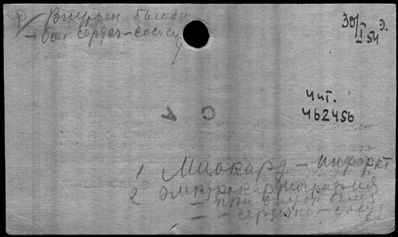 Внутрен. болезн
– бол. сердеч–сосуд
30/I 54 Э.
Чит.
462456
1 Миокард – инфаркт
2 Электрокардиография
– при внутр. болез
– – сердечно–сосуд